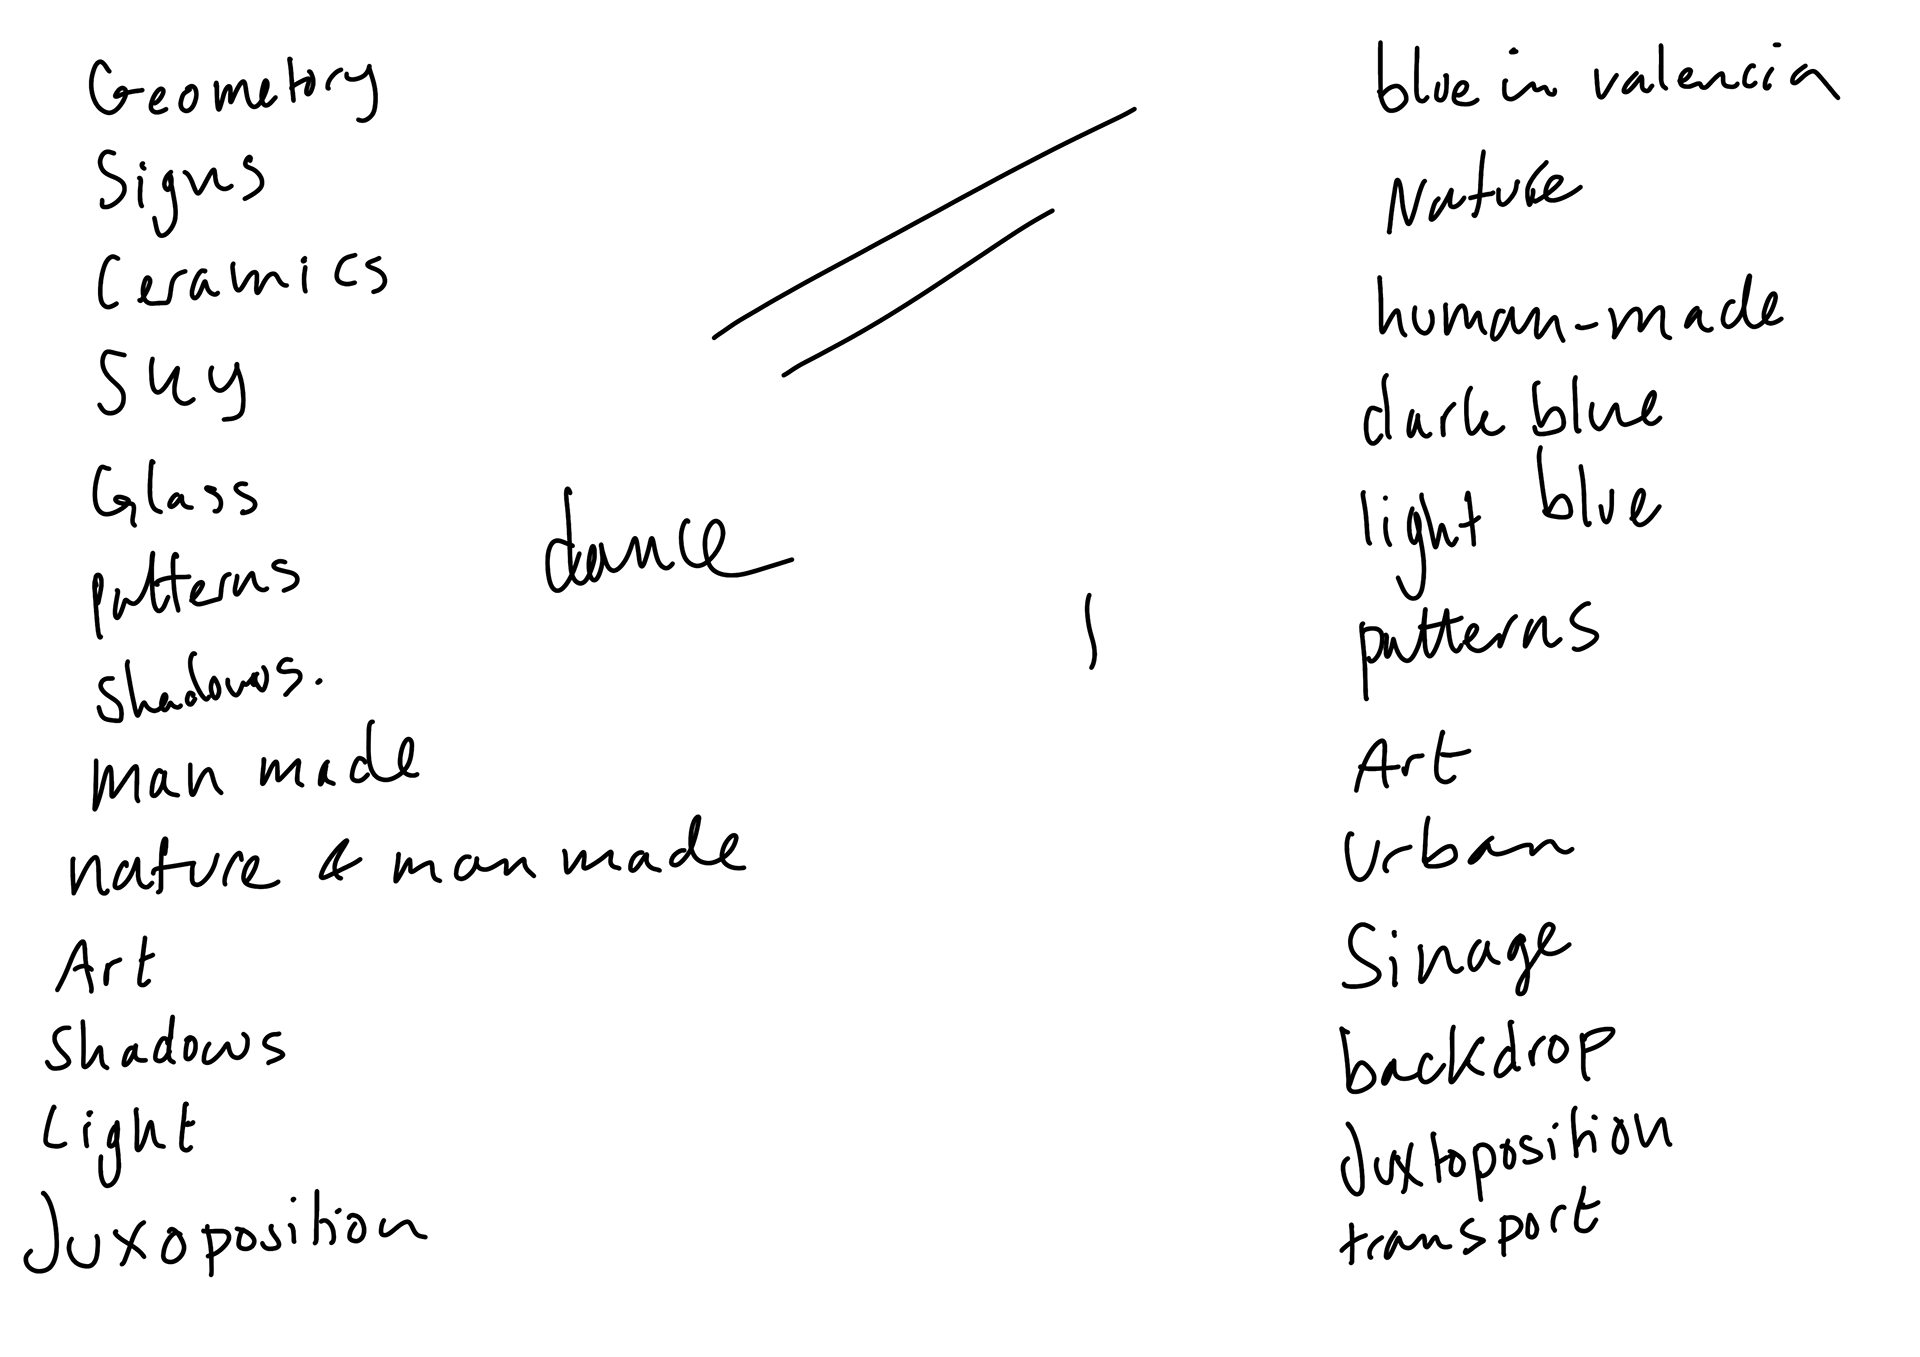 Geometory
Signs
Ceramics
Sky
Glass
patterns
Shadows.
man made
nature & man made
Art
Shadows
Light
Juxoposition
dance
blue in valencia
Nature
human-made
dark blue
light blue
patterns
Art
Urban
Sinage
backdrop
Juxtoposition
transport